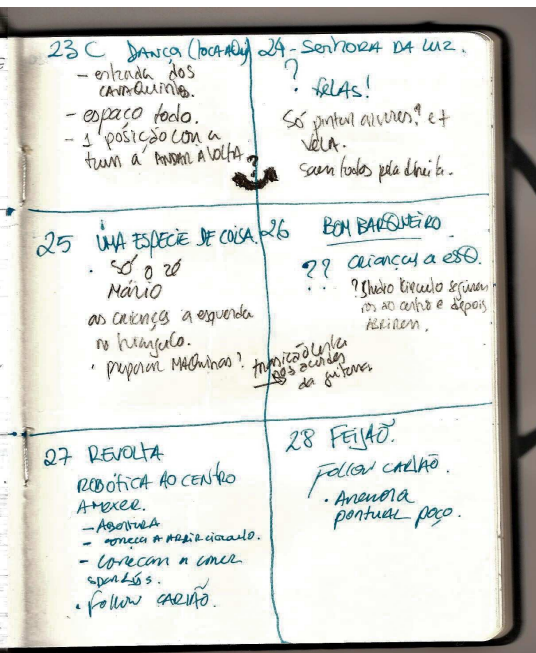 23 C DANÇA (TOCA AQUI)
- entrada dos
CAVAQUINHOS.
- espaço todo.
- 1 posição com a
tum á ANDAR À VOLTA.
?
24 - SENHORA DA LUZ.
?
VELAS!
Só pintam árvores? e t
VELA.
Saem todos pela direita.
25 UMA ESPÉCIE DE COISA.
. Só o zé
Mário
as crianças a esquerda
no triangulo.
. preparar MAQuinhas?
transição lenta
nos acordes
da guitarra.
26 BOM BARQUEIRO
?? crianças a esq.
...
? circulo
ros ao centro e depois
27 REVOLTA
ROBÓTICA AO CENTRO
A MEXER.
- ABERTURA
- começa A ABRIR
- começam a comer
. follow CARVÃO.
28 FEIJÃO.
follow CARVÃO.
. Anemona
pontual poço.